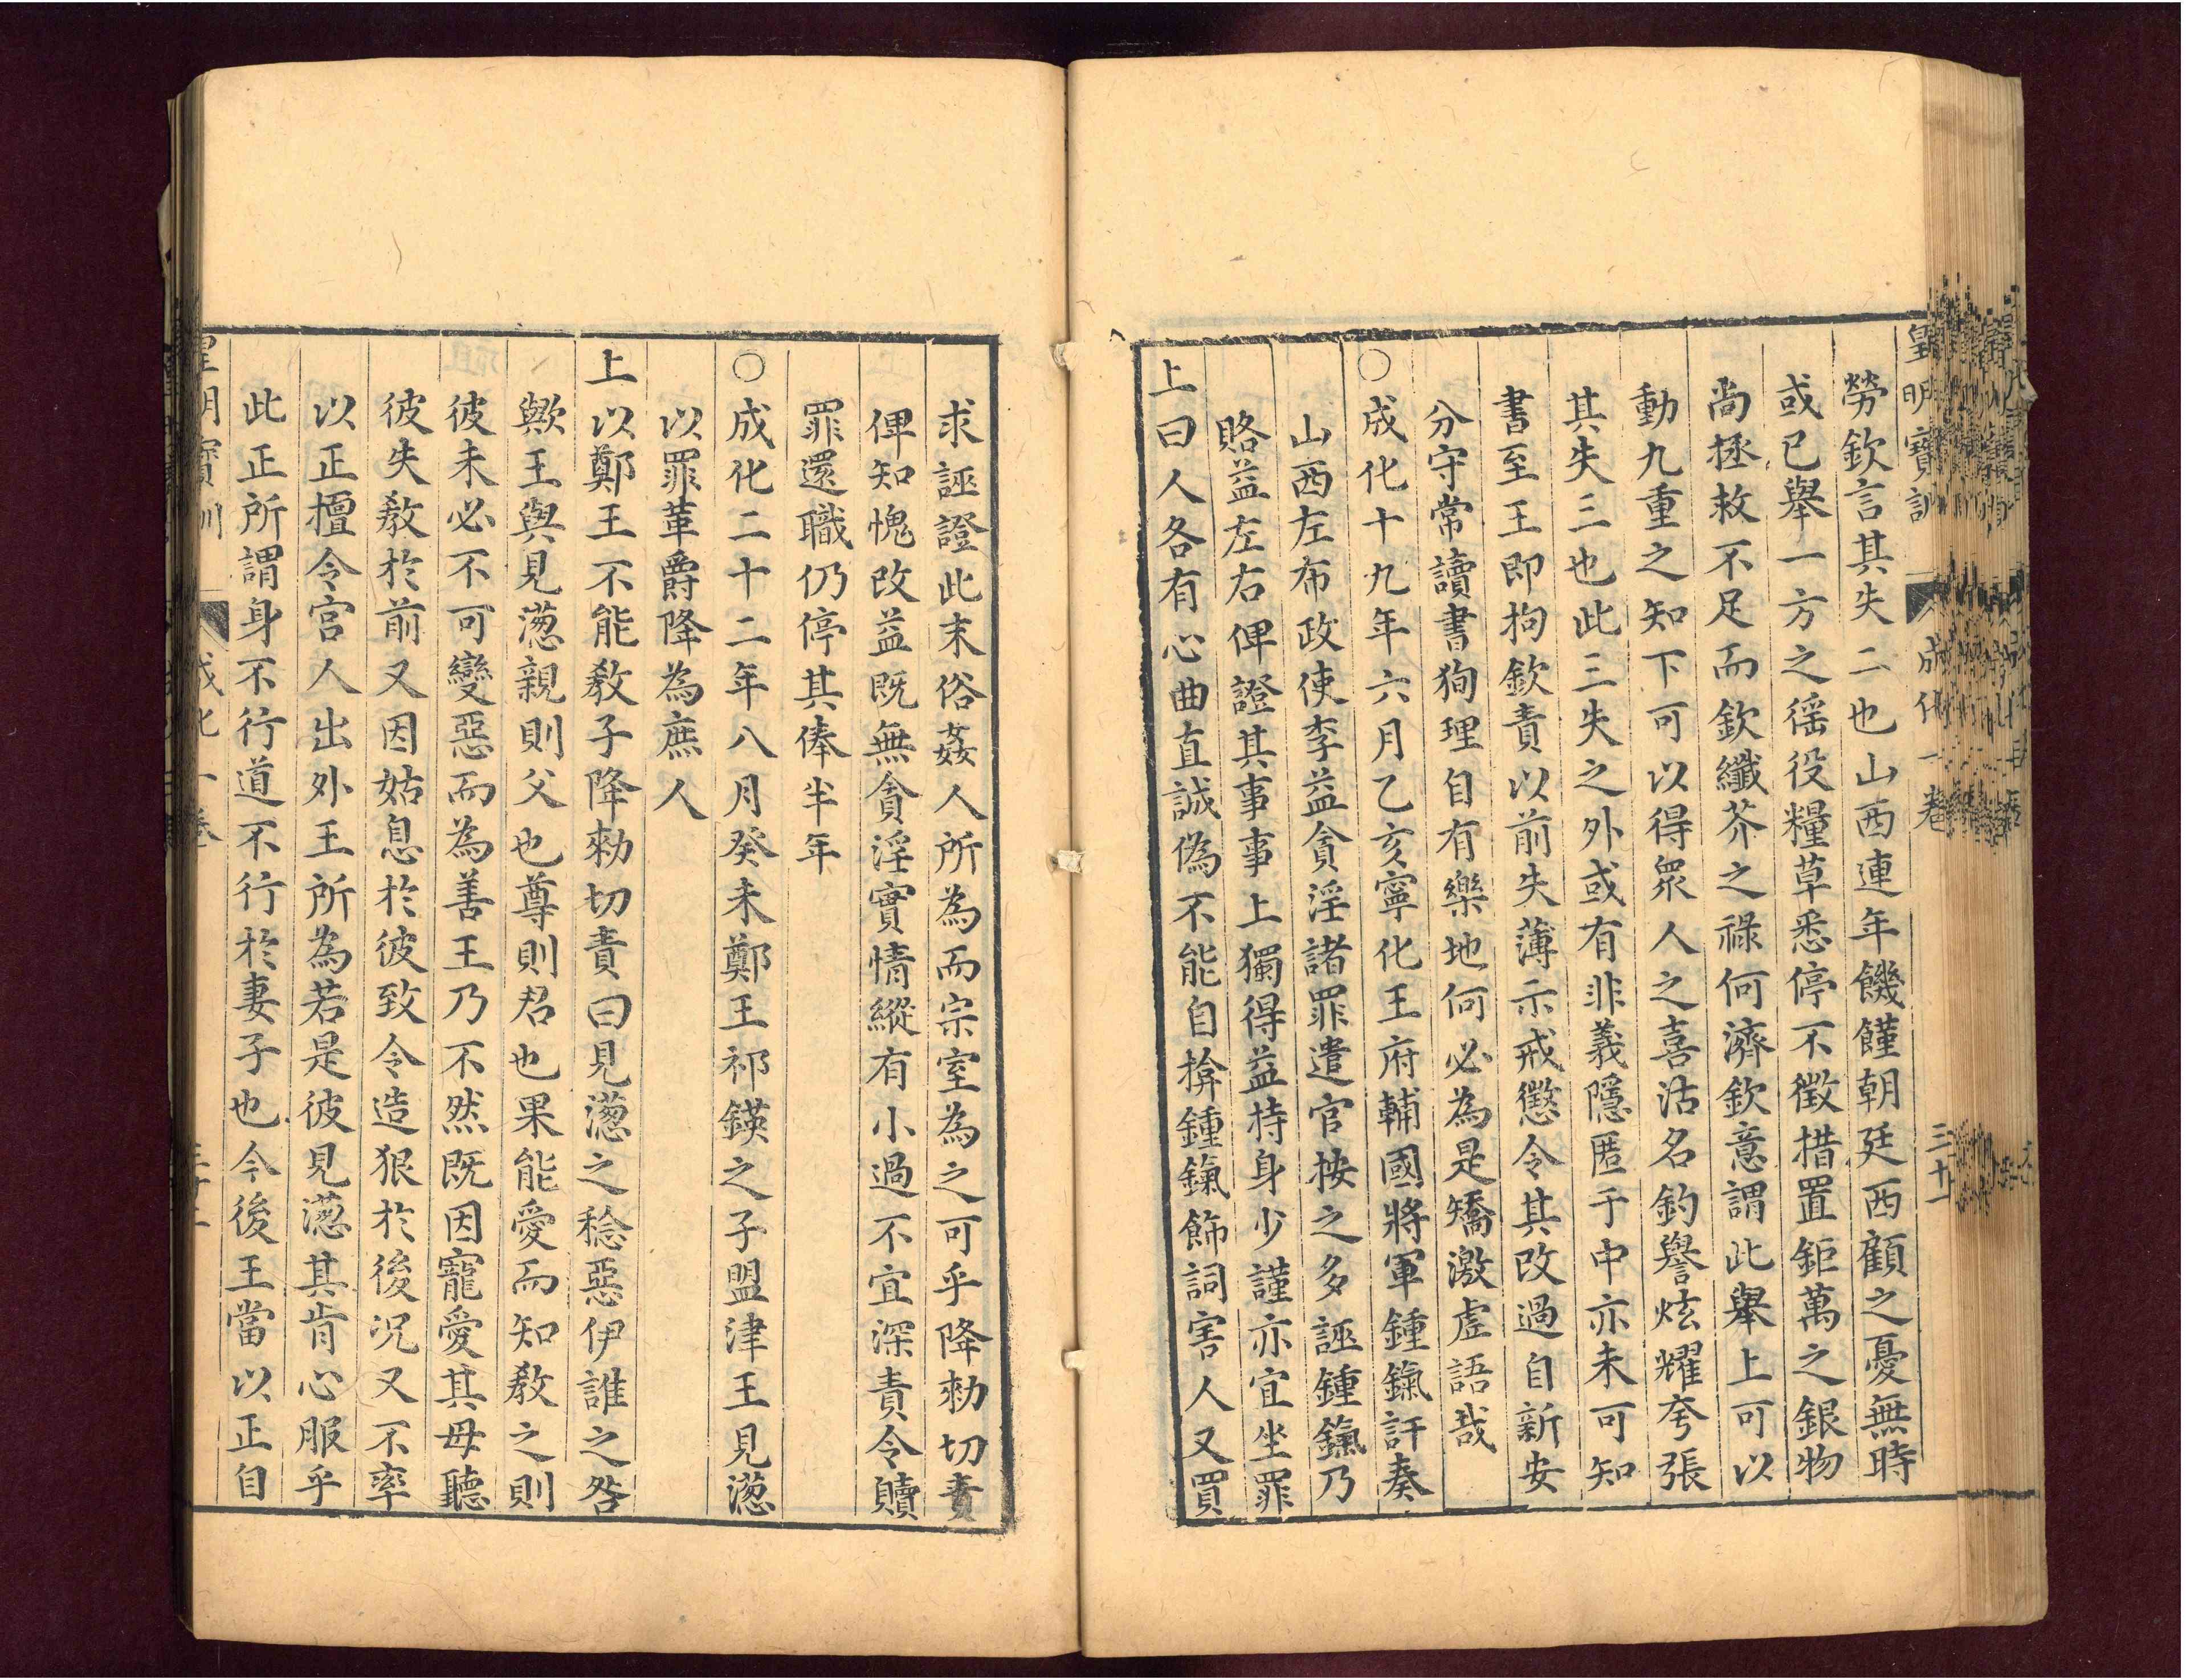 皇明寶訓 成化一卷 三十一
勞欽言其失二也山西連年饑饉朝廷西顧之憂無時
或已舉一方之徭役糧草悉停不徵措置鉅萬之銀物
尚拯救不足而欽纖芥之祿何濟欽意謂此舉上可以
動九重之知下可以得眾人之喜沽名釣譽炫耀夸張
其失三也此三失之外或有非義隱匿于中亦未可知
書至王即拘欽責以前失薄示戒懲令其改過自新安
分守常讀書狥理自有樂地何必為是矯激虛語哉
○成化十九年六月乙亥寧化王府輔國將軍鍾鎎訐奏
山西左布政使李益貪淫諸罪遣官按之多誣鍾鎎乃
賂益左右俾證其事事上獨得益持身少謹亦宜坐罪
上曰人各有心曲直誠偽不能自揜鍾鎎飾詞害人又買
求誣證此末俗姦人所為而宗室為之可乎降勑切責
俾知愧改益既無貪淫實情縱有小過不宜深責令贖
罪還職仍停其俸半年
○成化二十二年八月癸未鄭王祁鍈之子盟津王見濍
以罪革爵降為庶人
上以鄭王不能教子降勑切責曰見濍之稔惡伊誰之咎
歟王與見濍親則父也尊則君也果能愛而知教之則
彼未必不可變惡而為善王乃不然既因寵愛其母聽
彼失教於前又因姑息於彼致令造狠於後況又不率
以正檀令宮人出外王所為若是彼見濍其肯心服乎
此正所謂身不行道不行於妻子也今後王當以正自
皇明寶訓 成化一卷